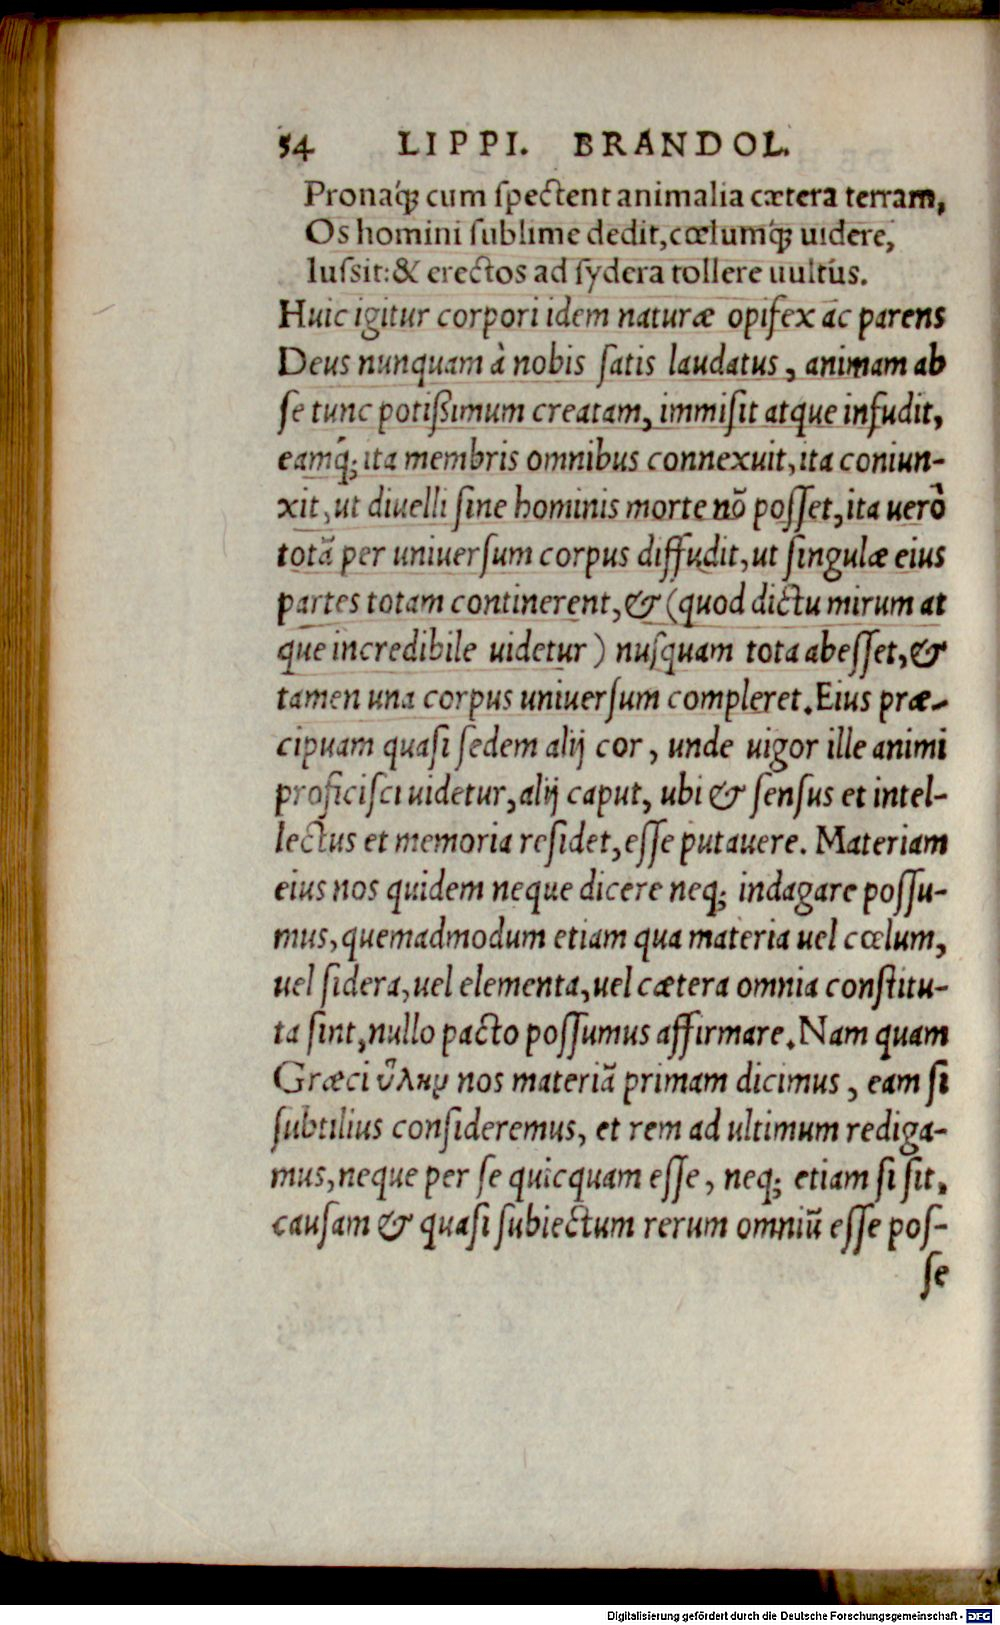 54 LIPPI. BRANDOL.
Pronaq́; cum ſpectent animalia cætera terram,
Os homini ſublime dedit, cœlumq́; uidere,
Iuſsit: & erectos ad ſydera tollere uultus.
Huic igitur corpori idem naturæ opifex ac parens
Deus nunquam à nobis ſatis laudatus, animam ab
ſe tunc potißimum creatam, immiſit atque infudit,
eamq́; ita membris omnibus connexuit, ita coniun-
xit, ut diuelli ſine hominis morte nõ poſſet, ita uerò
totã per uniuerſum corpus diffudit, ut ſingulæ eius
partes totam continerent, & (quod dictu mirum at
que incredibile uidetur) nuſquam tota abeſſet, &
tamen una corpus uniuerſum compleret. Eius præ-
cipuam quaſi ſedem alij cor, unde uigor ille animi
proficiſci uidetur, alij caput, ubi & ſenſus et intel-
lectus et memoria reſidet, eſſe putauere. Materiam
eius nos quidem neque dicere neq; indagare poſſu-
mus, quemadmodum etiam qua materia uel cœlum,
uel ſidera, uel elementa, uel cætera omnia conſtitu-
ta ſint, nullo pacto poſſumus affirmare. Nam quam
Græci ὕλην nos materiã primam dicimus, eam ſi
ſubtilius conſideremus, et rem ad ultimum rediga-
mus, neque per ſe quicquam eſſe, neq; etiam ſi ſit,
cauſam & quaſi ſubiectum rerum omniũ eſſe poſ-
ſe
Digitalisierung gefördert durch die Deutsche Forschungsgemeinschaft - DFG